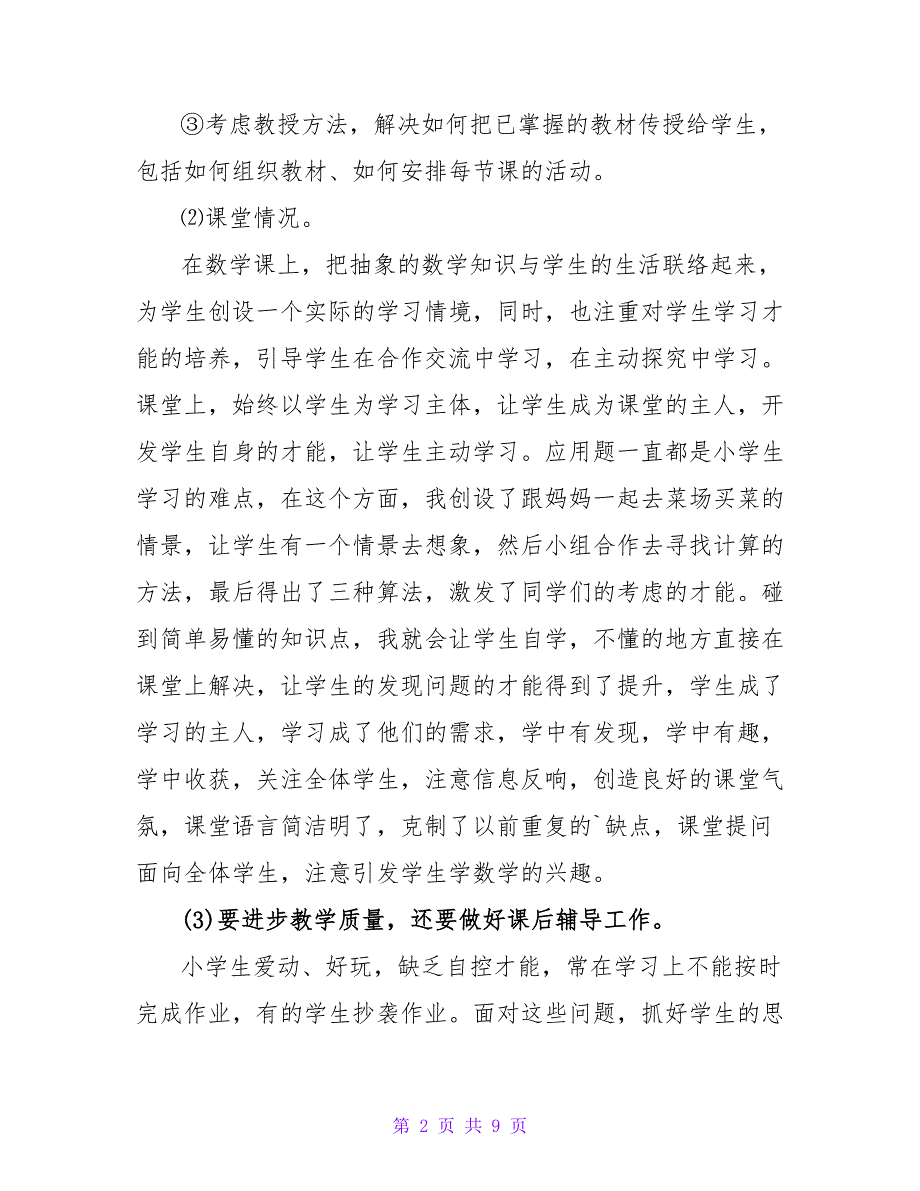 ③考虑教授方法，解决如何把已掌握的教材传授给学生，
包括如何组织教材、如何安排每节课的活动。
⑵课堂情况。
在数学课上，把抽象的数学知识与学生的生活联络起来，
为学生创设一个实际的学习情境，同时，也注重对学生学习才
能的培养，引导学生在合作交流中学习，在主动探究中学习。
课堂上，始终以学生为学习主体，让学生成为课堂的主人，开
发学生自身的才能，让学生主动学习。应用题一直都是小学生
学习的难点，在这个方面，我创设了跟妈妈一起去菜场买菜的
情景，让学生有一个情景去想象，然后小组合作去寻找计算的
方法，最后得出了三种算法，激发了同学们的考虑的才能。碰
到简单易懂的知识点，我就会让学生自学，不懂的地方直接在
课堂上解决，让学生的发现问题的才能得到了提升，学生成了
学习的主人，学习成了他们的需求，学中有发现，学中有趣，
学中收获，关注全体学生，注意信息反响，创造良好的课堂气
氛，课堂语言简洁明了，克制了以前重复的`缺点，课堂提问
面向全体学生，注意引发学生学数学的兴趣。
⑶要进步教学质量，还要做好课后辅导工作。
小学生爱动、好玩，缺乏自控才能，常在学习上不能按时
完成作业，有的学生抄袭作业。面对这些问题，抓好学生的思
第 2 页 共 9 页